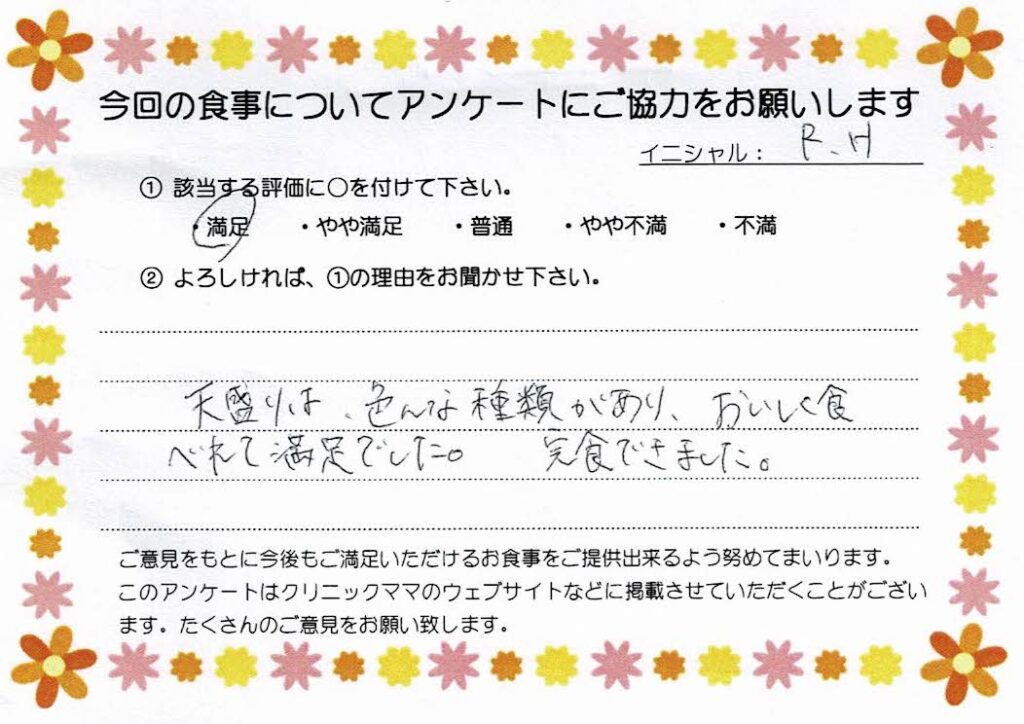 今回の食事についてアンケートにご協力をお願いします
イニシャル： R.H
① 該当する評価に○を付けて下さい。
・満足 ・やや満足 ・普通 ・やや不満 ・不満
② よろしければ、①の理由をお聞かせ下さい。
天盛りは、色んな種類があり、おいしく食
べれて満足でした。 完食できました。
ご意見をもとに今後もご満足いただけるお食事をご提供出来るよう努めてまいります。
このアンケートはクリニックママのウェブサイトなどに掲載させていただくことがござい
ます。たくさんのご意見をお願い致します。